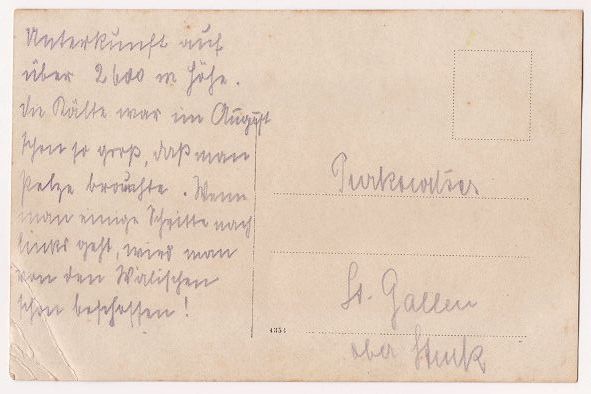 Unterkunft auf
über 2600 m Höhe.
Die Kälte war im August
schon so groß, daß man
Pelze brauchte. Wenn
man einige Schritte nach
links geht, wird man
von den Walischen
schon beschossen!
St. Gallen
4354
ober